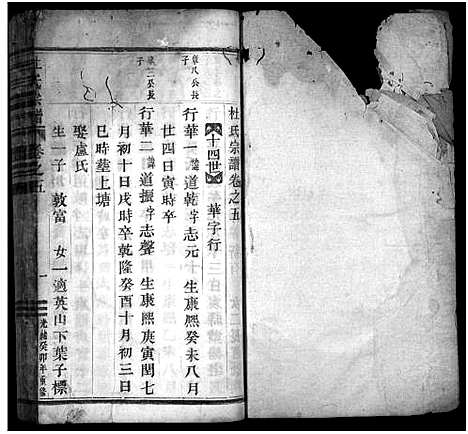 杜氏宗譜卷之五
十四世　華字行
恆八公長子
行華一　諱道乾字志元　生康熙癸未八月
廿四日寅時卒
二公長子
行華二　諱道振字志聲　生康熙庚寅閏七
月初十日戌時卒乾隆癸酉十月初三日
巳時塟上塘
娶盧氏
生一子　敦富　女一適英山下葉子標
杜氏宗譜　卷之五　一　光緒癸卯年重修